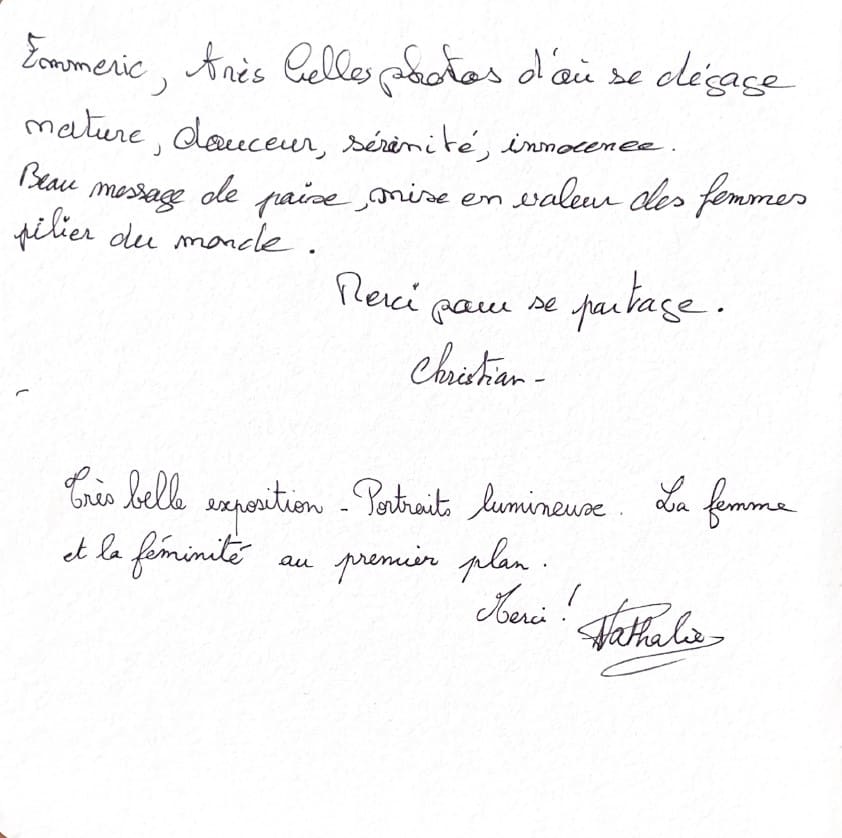 Emmeric, très belles photos d'où se dégage
nature, douceur, sérénité, innocence.
Beau message de paixe, mise en valeur des femmes
pilier du monde.
Merci pour se partage.
Christian -
Très belle exposition - Portraits lumineuse. La femme
et la féminité au premier plan.
Merci ! Nathalie